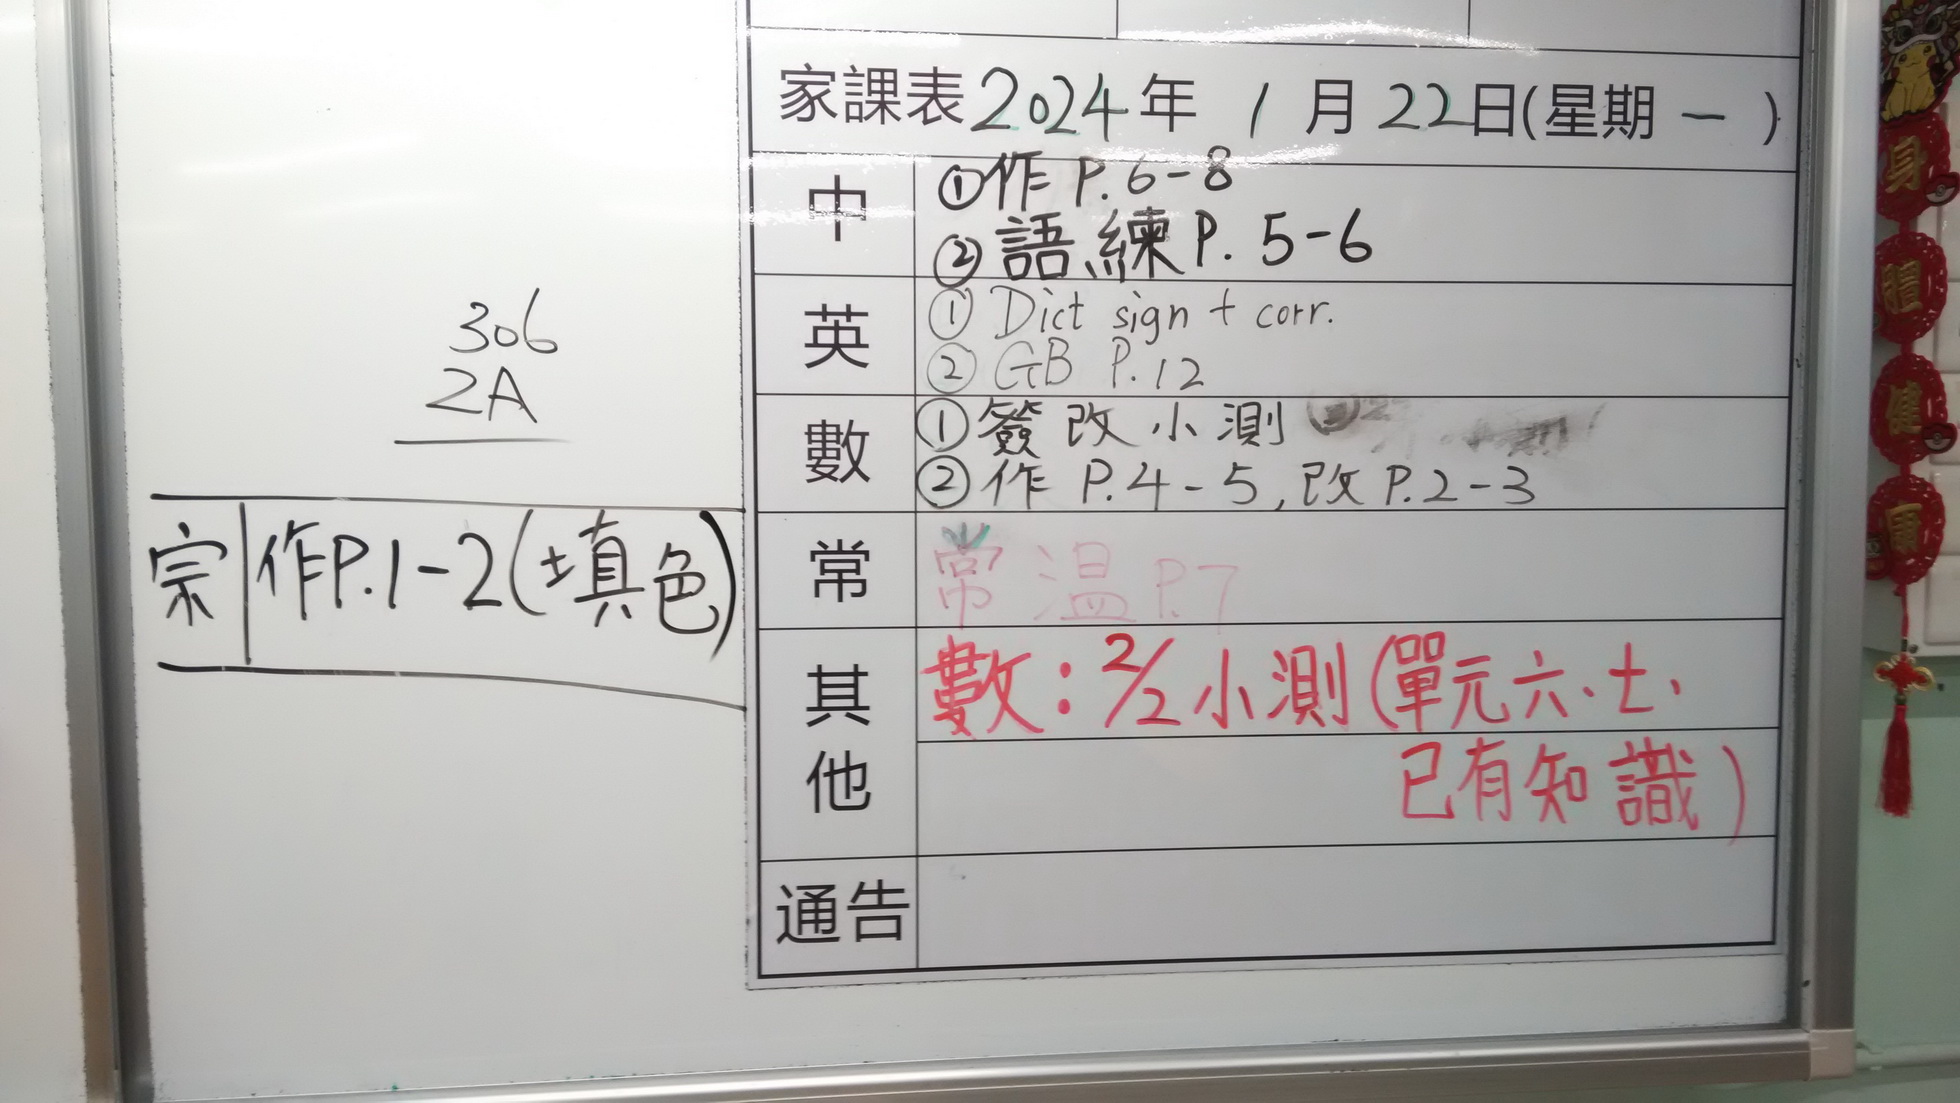 家課表2024年 1月22日(星期一)
中 ①作P.6-8
②語練P.5-6
英 ① Dict sign + corr.
② GB P.12
數 ①簽改小測
②作 P.4-5,改P.2-3
常 常溫P.7
其他 數:2/2小測(單元六、七、
已有知識)
通告
306
2A
宗 作P.1-2(填色)
身
體
健
康